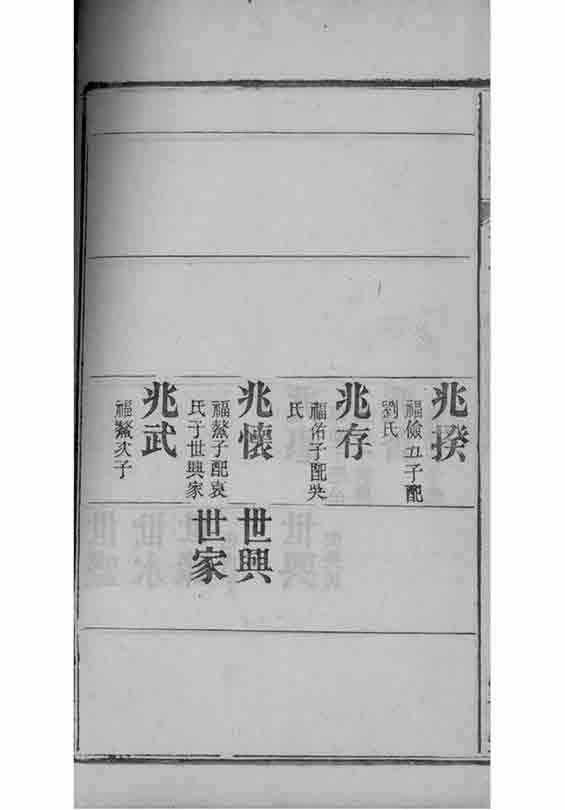 兆揆
福儉五子配
劉氏
兆存
福佑子配吳
氏
兆懷
福鰲子配袁
氏子世興家
兆武
福鰲次子
世興
世家